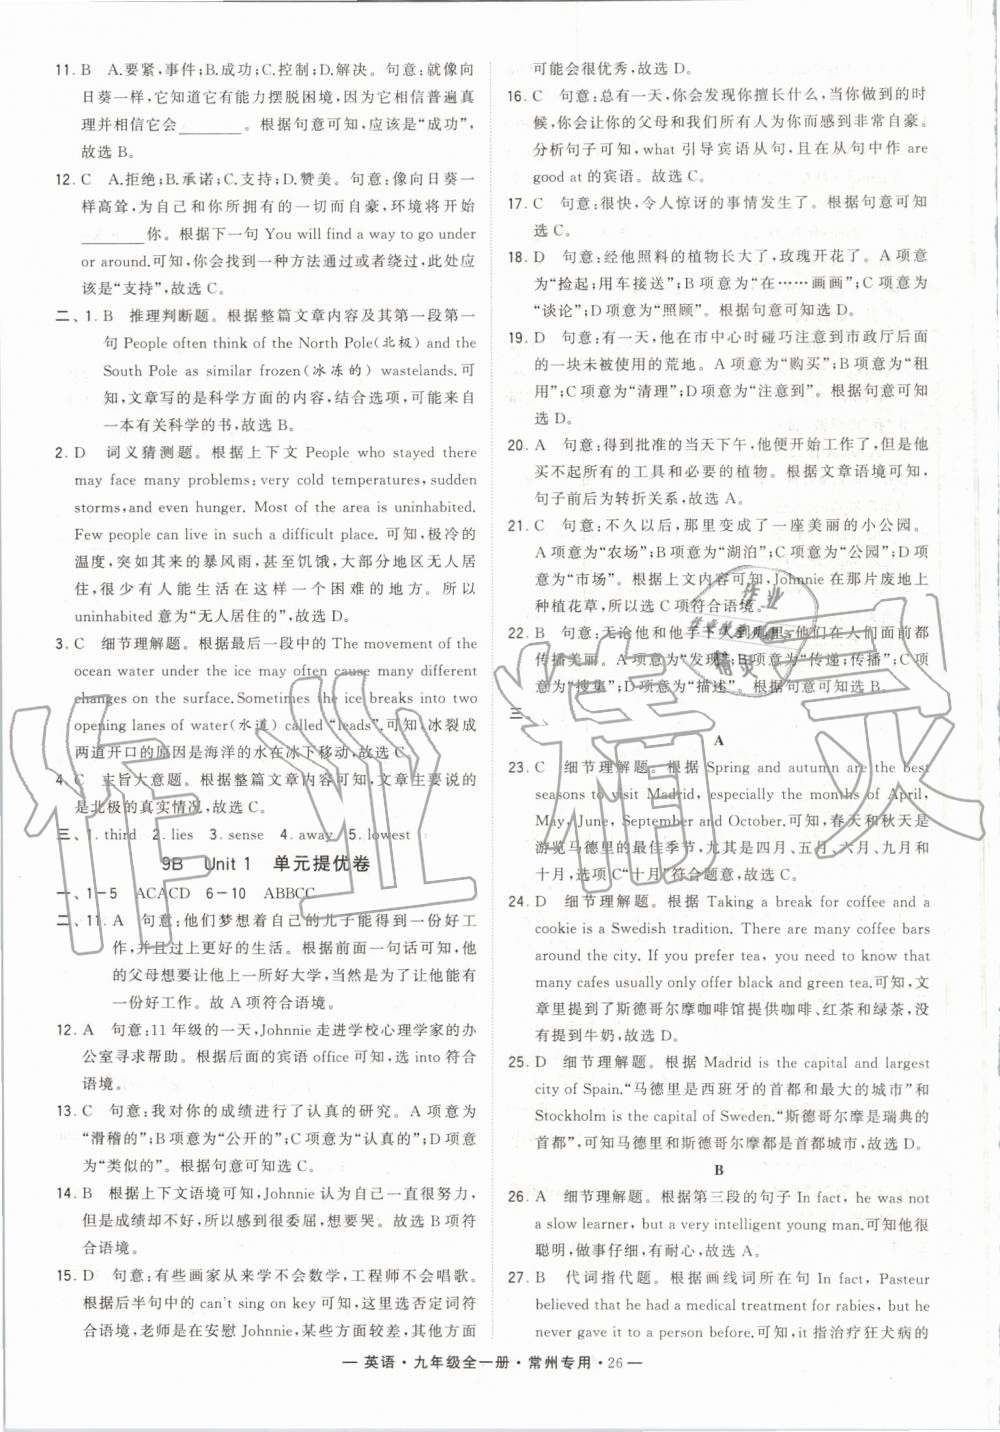 11. B　A.要紧,事件;B.成功;C.控制;D.解决。句意:就像向
日葵一样,它知道它有能力摆脱困境,因为它相信普遍真
理并相信它会________。根据句意可知,应该是“成功”,
故选 B。
12. C　A.拒绝;B.承诺;C.支持;D.赞美。句意:像向日葵一
样高耸,为自己和你所拥有的一切而自豪,环境将开始
________你。根据下一句 You will find a way to go under
or around.可知,你会找到一种方法通过或者绕过,此处应
该是“支持”,故选 C。
二、1. B　推理判断题。根据整篇文章内容及其第一段第一
句 People often think of the North Pole(北极) and the
South Pole as similar frozen(冰冻的) wastelands.可
知,文章写的是科学方面的内容,结合选项,可能来自
一本有关科学的书,故选 B。
2. D　词义猜测题。根据上下文 People who stayed there
may face many problems: very cold temperatures, sudden
storms, and even hunger. Most of the area is uninhabited.
Few people can live in such a difficult place. 可知,极冷的
温度,突如其来的暴风雨,甚至饥饿,大部分地区无人居
住,很少有人能生活在这样一个困难的地方。所以
uninhabited 意为“无人居住的”,故选 D。
3. C　细节理解题。根据最后一段中的 The movement of the
ocean water under the ice may often cause many different
changes on the surface. Sometimes the ice breaks into two
opening lanes of water(水道) called “leads”. 可知,冰裂成
两道开口的原因是海洋的水在冰下移动,故选 C。
4. C　主旨大意题。根据整篇文章内容可知,文章主要说的
是北极的真实情况,故选 C。
三、1. third　2. lies　3. sense　4. away　5. lowest
9B　Unit 1　单元提优卷
一、1－5　ACACD　6－10　ABBCC
二、11. A　句意:他们梦想着自己的儿子能得到一份好工
作,并且过上更好的生活。根据前面一句话可知,他
的父母想要让他上一所好大学,当然是为了让他能有
一份好工作。故 A 项符合语境。
12. A　句意:11 年级的一天,Johnnie 走进学校心理学家的办
公室寻求帮助。根据后面的宾语 office 可知,选 into 符合
语境。
13. C　句意:我对你的成绩进行了认真的研究。A 项意为
“滑稽的”;B 项意为“公开的”;C 项意为“认真的”;D 项
意为“类似的”。根据句意可知选 C。
14. B　根据上下文语境可知,Johnnie 认为自己已经很努力,
但是成绩却不好,所以感到很委屈,想要哭。故选 B 项符
合语境。
15. D　句意:有些画家从来学不会数学,工程师不会唱歌。
根据后半句中的 can't sing on key 可知,这里选否定词符
合语境,老师是在安慰 Johnnie,某些方面较差,其他方面
可能会很优秀,故选 D。
16. C　句意:总有一天,你会发现你擅长什么,当你做到的时
候,你会让你的父母和我们所有人为你而感到非常自豪。
分析句子可知,what 引导宾语从句,且在从句中作 are
good at 的宾语。故选 C。
17. C　句意:很快,令人惊讶的事情发生了。根据句意可知
选 C。
18. D　句意:经他照料的植物长大了,玫瑰开花了。A 项意
为“捡起;用车接送”;B 项意为“在……画画”;C 项意为
“谈论”;D 项意为“照顾”。根据句意可知选 D。
19. D　句意:有一天,他在市中心时碰巧注意到市政厅后面
的一块未被使用的荒地。A 项意为“购买”;B 项意为“租
用”;C 项意为“清理”;D 项意为“注意到”。根据句意可知
选 D。
20. A　句意:得到批准的当天下午,他便开始工作了,但是他
买不起所有的工具和必要的植物。根据文章语境可知,
句子前后为转折关系,故选 A。
21. C　句意:不久以后,那里变成了一座美丽的小公园。
A 项意为“农场”;B 项意为“湖泊”;C 项意为“公园”;D 项
意为“市场”。根据上下文内容可知,Johnnie 在那片废地上
种植花草,所以选 C 项符合语境。
22. B　句意:无论他和他手下人到哪里,他们在人们面前都
传播美丽。A 项意为“发现”;B 项意为“传递;传播”;C 项
意为“搜集”;D 项意为“描述”。根据句意可知选 B。
三、
A
23. C　细节理解题。根据 Spring and autumn are the best
seasons to visit Madrid, especially the months of April,
May, June, September and October.可知,春天和秋天是
游览马德里的最佳季节,尤其是四月、五月、六月、九月和
十月,选项 C“十月”符合题意,故选 C。
24. D　细节理解题。根据 Taking a break for coffee and a
cookie is a Swedish tradition. There are many coffee bars
around the city. If you prefer tea, you need to know that
many cafes usually only offer black and green tea.可知,文
章里提到了斯德哥尔摩咖啡馆提供咖啡、红茶和绿茶,没
有提到牛奶,故选 D。
25. D　细节理解题。根据 Madrid is the capital and largest
city of Spain.“马德里是西班牙的首都和最大的城市”和
Stockholm is the capital of Sweden.“斯德哥尔摩是瑞典的
首都”,可知马德里和斯德哥尔摩都是首都城市,故选 D。
B
26. A　细节理解题。根据第三段的句子 In fact, he was not
a slow learner, but a very intelligent young man.可知他很
聪明,做事仔细,有耐心,故选 A。
27. B　代词指代题。根据画线词所在句 In fact, Pasteur
believed that he had a medical treatment for rabies, but he
never gave it to a person before.可知,it 指治疗狂犬病的
— 英语·九年级全一册·常州专用·26 —
作业
精灵
作业精灵